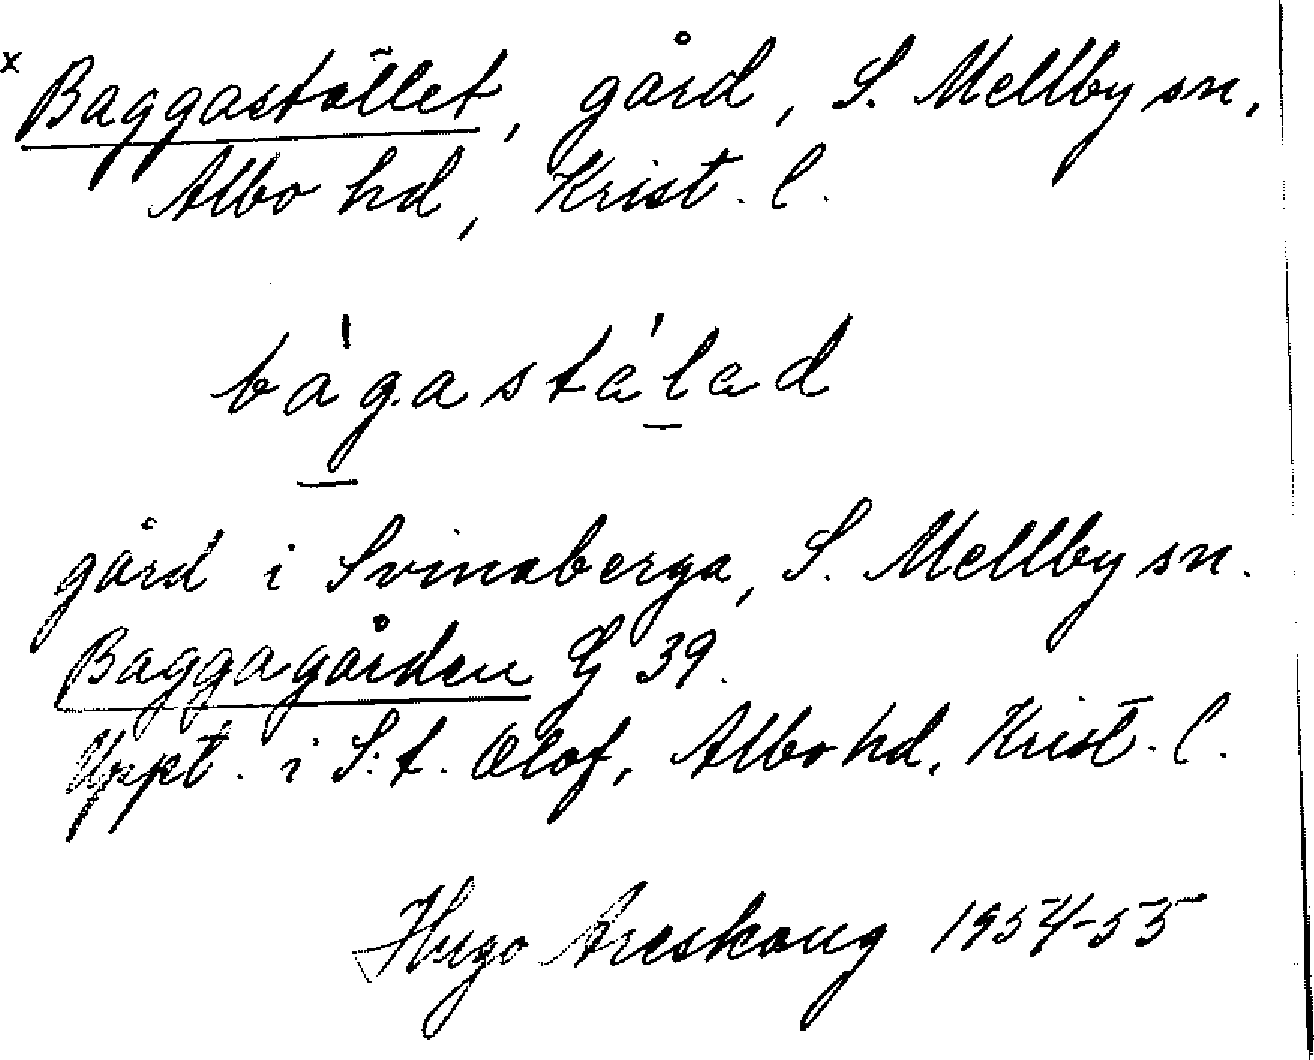 x Baggastället, gård, S. Mellby sn,
Albo hd, Krist. l.
bàgastálad
gård i Svinaberga, S. Mellby sn.
Baggagården G 39.
Uppt. i S:t. Olof, Albo hd, Krist. l.
Hugo Areskoug 1954-55